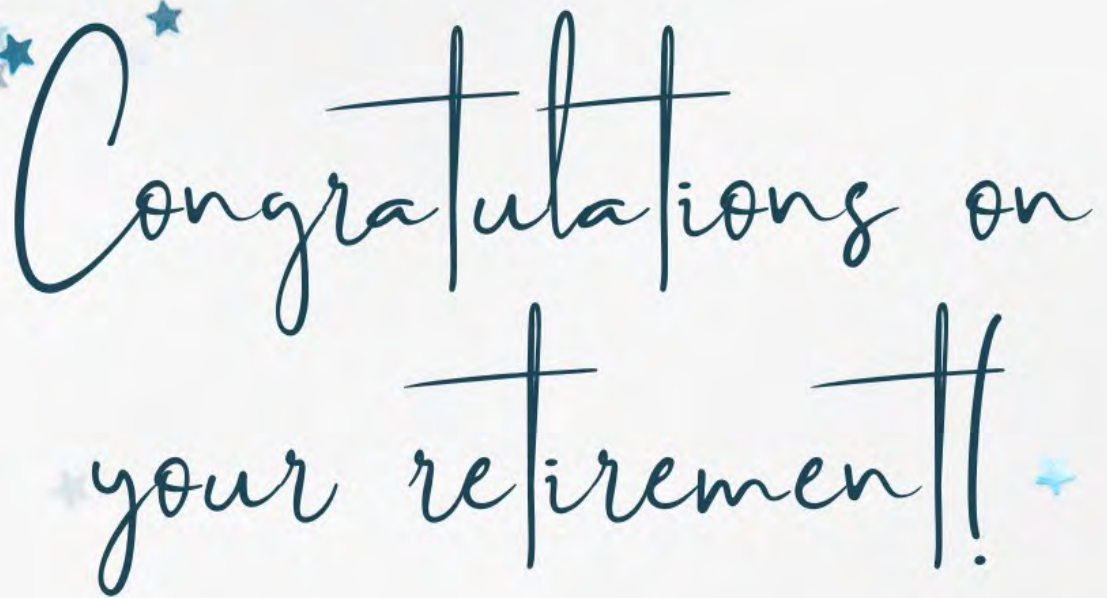 Congratulations on
your retirement!